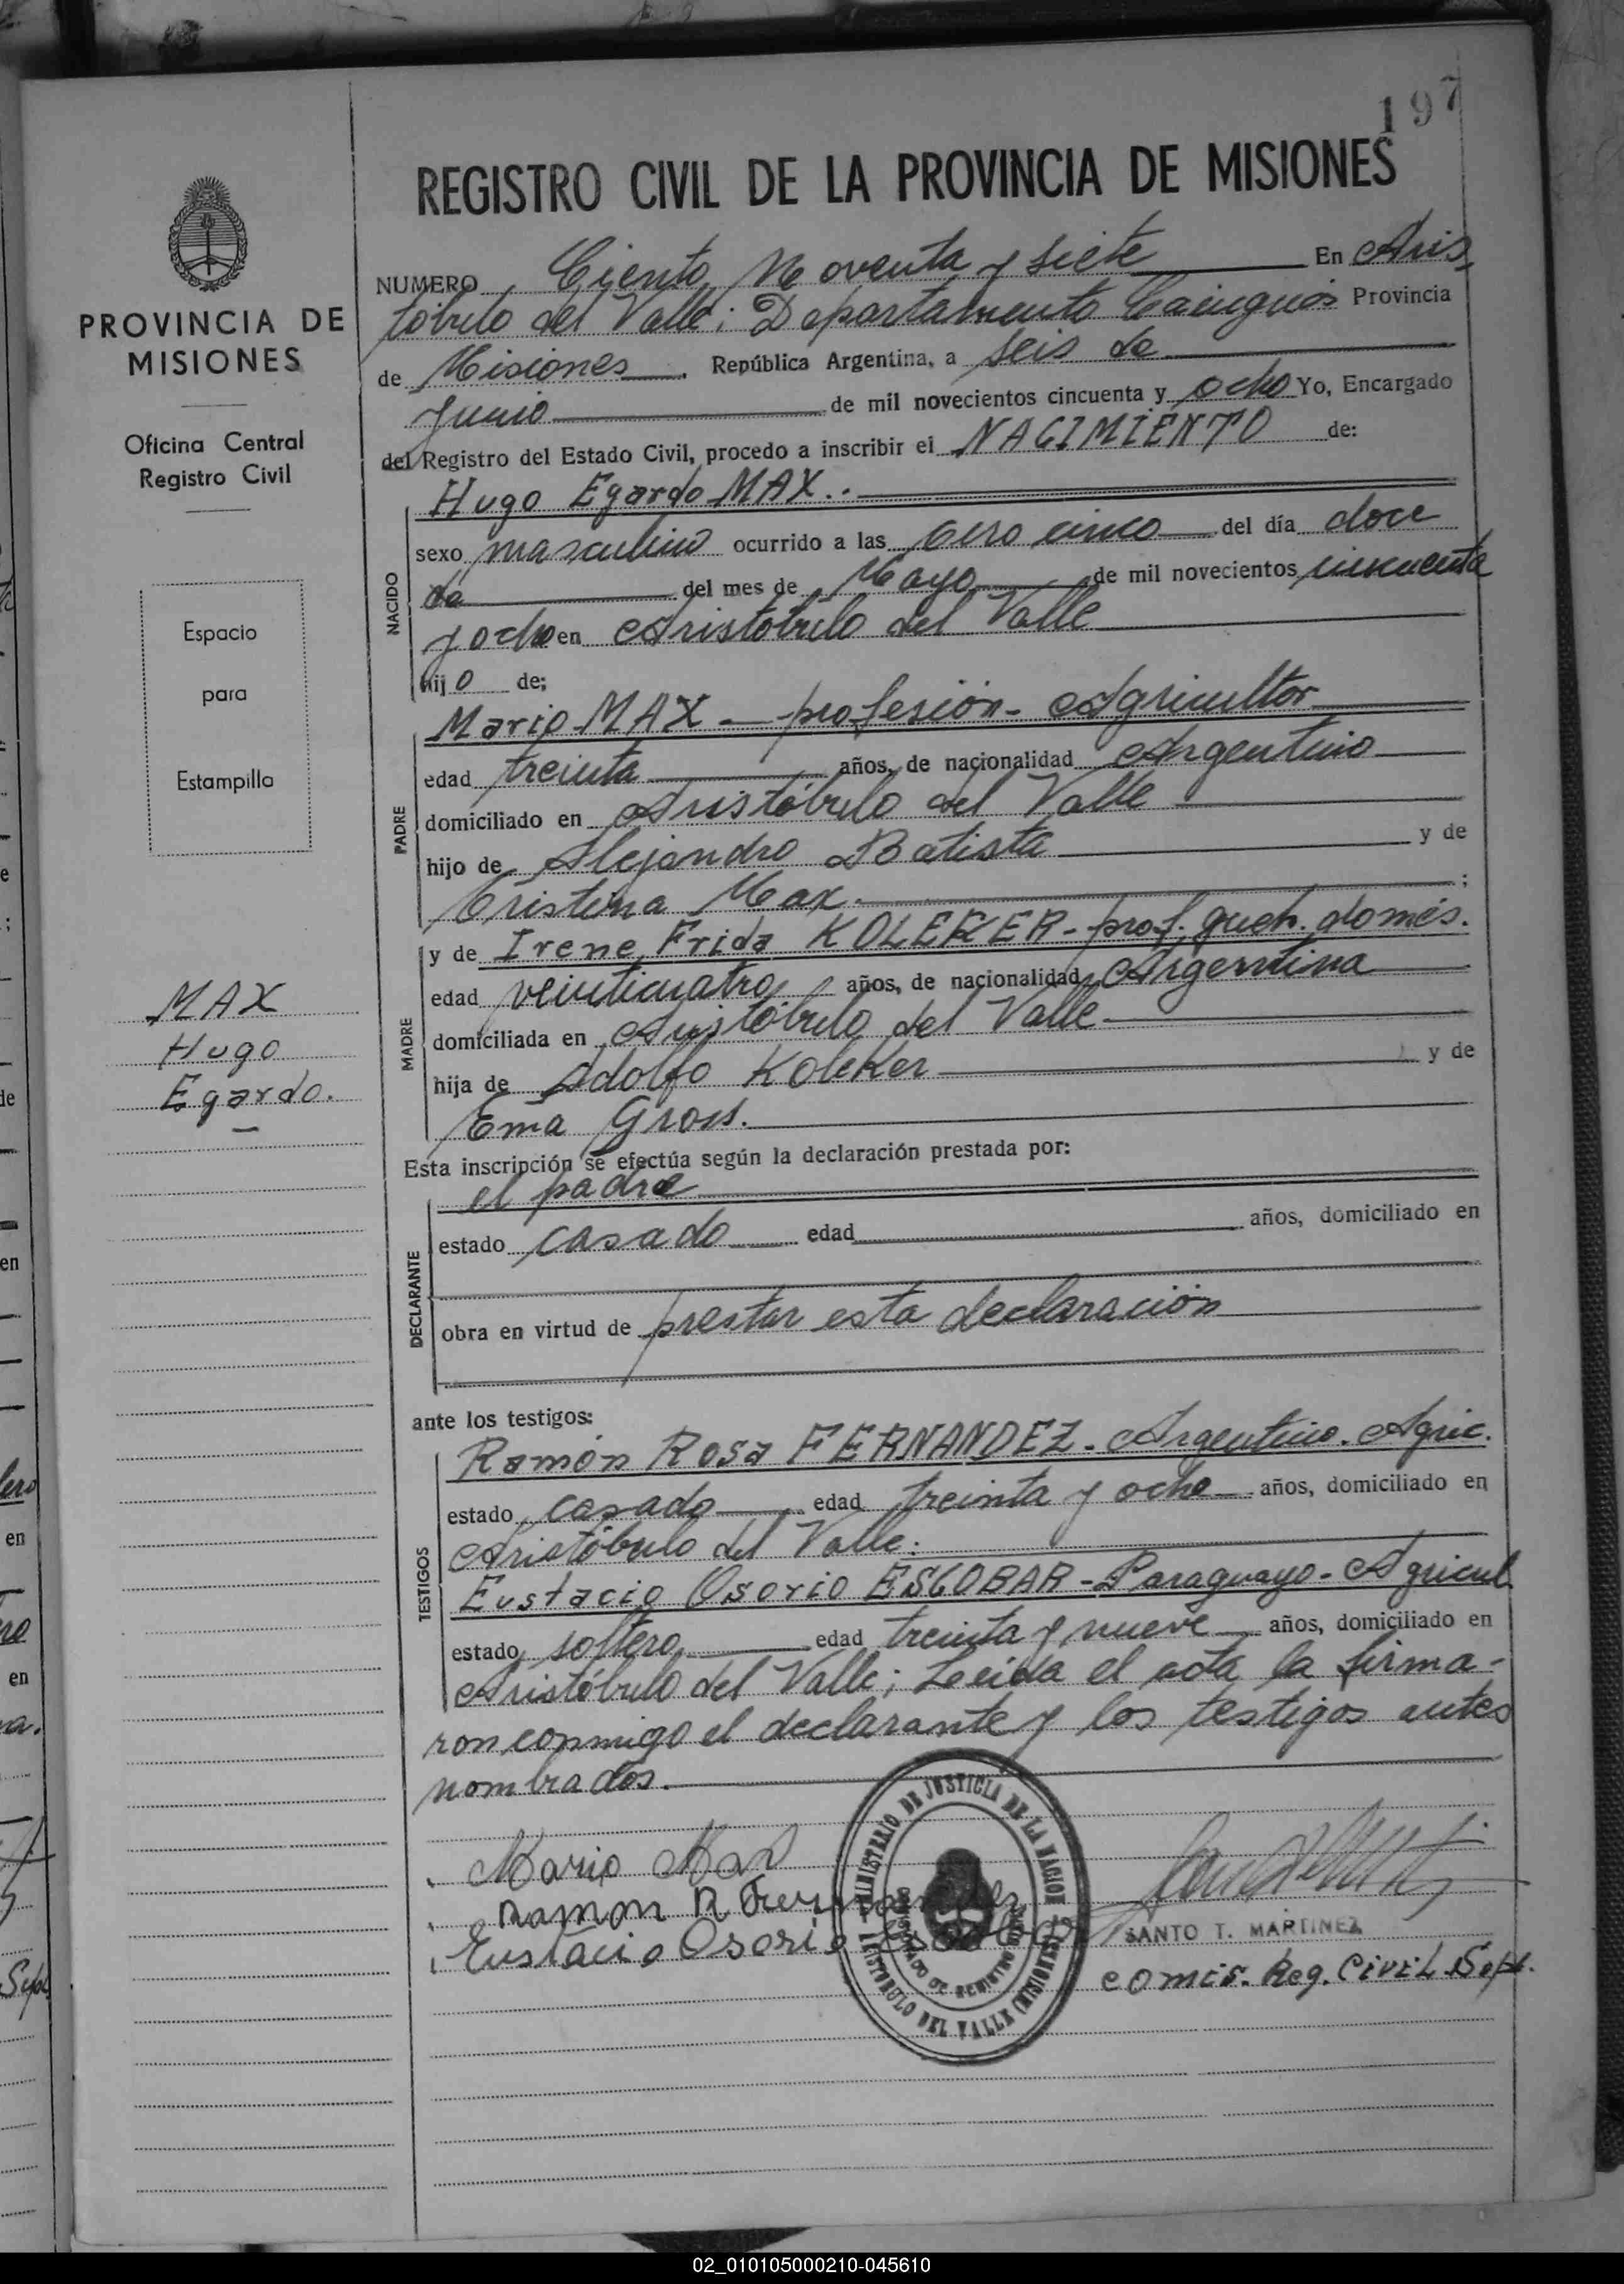 197
REGISTRO CIVIL DE LA PROVINCIA DE MISIONES
PROVINCIA DE
MISIONES
Oficina Central
Registro Civil
Espacio
para
Estampilla
MAX
Hugo
Egardo.
NUMERO Ciento Noventa y siete En Aris
tóbulo del Valle; Departamento Cainguás Provincia
de Misiones. República Argentina, a seis de
Junio de mil novecientos cincuenta y ocho Yo, Encargado
del Registro del Estado Civil, procedo a inscribir el NACIMIENTO de:
NACIDO
Hugo Egardo MAX..
sexo masculino ocurrido a las cero cinco del día doce
de del mes de Mayo de mil novecientos cincuenta
y ocho en Aristóbulo del Valle
hijo de;
PADRE
Mario MAX - profesión - Agricultor
edad treinta años, de nacionalidad Argentino
domiciliado en Aristóbulo del Valle
hijo de Alejandro Batista y de
Cristina Max. ;
MADRE
y de Irene Frida KOLEKER - prof. queh. domés.
edad veinticuatro años, de nacionalidad Argentina
domiciliada en Aristóbulo del Valle
hija de Adolfo Koleker y de
Ema Gross.
Esta inscripción se efectúa según la declaración prestada por:
DECLARANTE
el padre
estado casado edad años, domiciliado en
obra en virtud de prestar esta declaración
ante los testigos:
TESTIGOS
Ramón Rosa FERNANDEZ - Argentino. Agric.
estado casado edad treinta y ocho años, domiciliado en
Aristóbulo del Valle.
Eustacio Osorio ESCOBAR - Paraguayo - Agricul
estado soltero edad treinta y nueve años, domiciliado en
Aristóbulo del Valle; Leída el acta la firma-
ron conmigo el declarante y los testigos antes
nombrados.
Mario Max
Ramon R Fernandez
Eustacio Osorio Escobar
MINISTERIO DE JUSTICIA DE LA NACION
ARISTOBULO DEL VALLE (MISIONES)
SANTO T. MARTINEZ
comis. Reg. CIVIL Sopl.
02_010105000210-045610